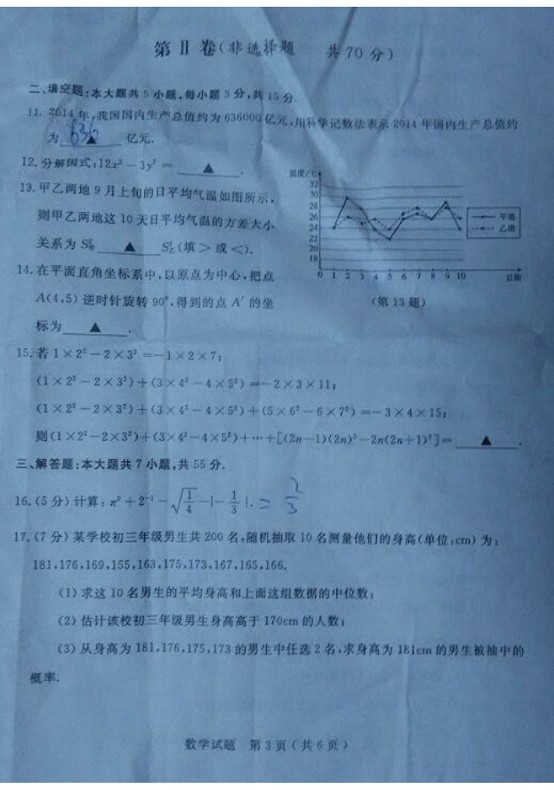 第 Ⅱ 卷(非选择题 共 70 分)
二、填空题:本大题共 5 小题,每小题 3 分,共 15 分.
11. 2014 年,我国国内生产总值约为 636000 亿元,用科学记数法表示 2014 年国内生产总值约
为 ▲ 亿元.
12. 分解因式:12x²-3y²= ▲ .
13. 甲乙两地 9 月上旬的日平均气温如图所示,
则甲乙两地这 10 天日平均气温的方差大小
关系为 S²甲 ▲ S²乙(填>或<).
温度/℃
32
30
28
26
24
22
20
18
0 1 2 3 4 5 6 7 8 9 10 日期
甲地
乙地
(第 13 题)
14. 在平面直角坐标系中,以原点为中心,把点
A(4,5) 逆时针旋转 90°,得到的点 A′ 的坐
标为 ▲ .
15. 若 1×2²-2×3²=-1×2×7;
(1×2²-2×3²)+(3×4²-4×5²)=-2×3×11;
(1×2²-2×3²)+(3×4²-4×5²)+(5×6²-6×7²)=-3×4×15;
则(1×2²-2×3²)+(3×4²-4×5²)+…+[(2n-1)(2n)²-2n(2n+1)²]= ▲ .
三、解答题:本大题共 7 小题,共 55 分.
16. (5 分) 计算:π⁰+2⁻¹-√(1/4)-|-1/3|. = 2/3
17. (7 分) 某学校初三年级男生共 200 名,随机抽取 10 名测量他们的身高(单位:cm) 为:
181,176,169,155,163,175,173,167,165,166.
(1) 求这 10 名男生的平均身高和上面这组数据的中位数;
(2) 估计该校初三年级男生身高高于 170cm 的人数;
(3) 从身高为 181,176,175,173 的男生中任选 2 名,求身高为 181cm 的男生被抽中的
概率.
数学试题 第 3 页 ( 共 6 页 )